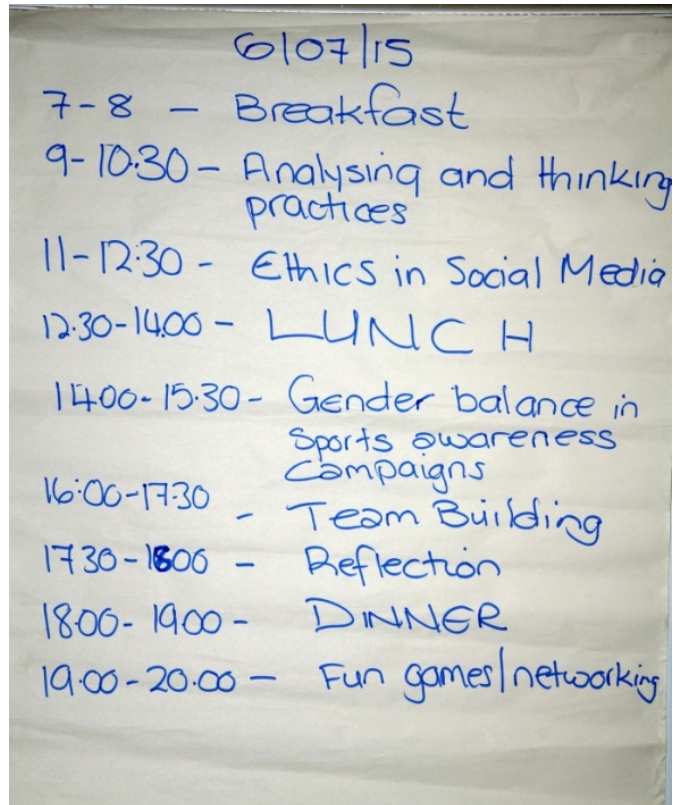 6/07/15
7-8 - Breakfast
9-10.30 - Analysing and thinking
practices
11-12:30 - Ethics in Social Media
12.30-14.00 - LUNCH
14.00-15.30 - Gender balance in
Sports awareness
Campaigns
16:00-17.30
- Team Building
17 30-1800 - Reflection
18.00-19.00 - DINNER
19.00-20.00 - Fun games/networking